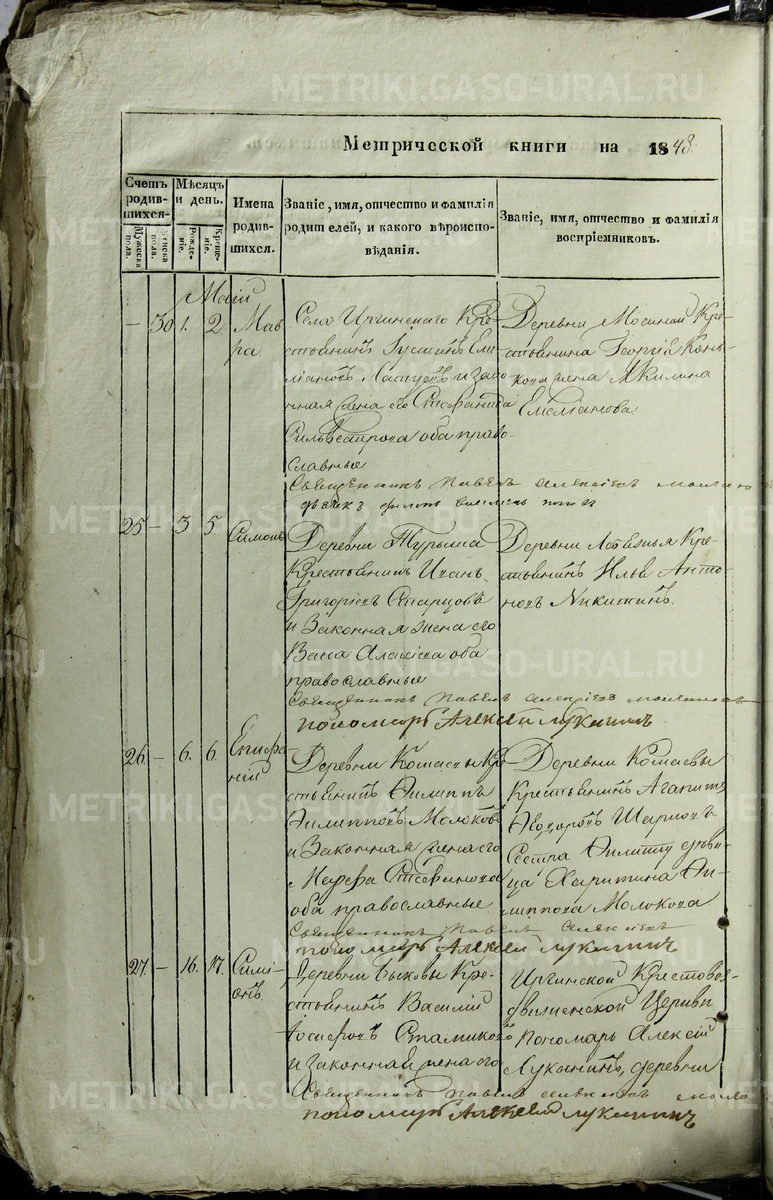 METRIKI.GASO-URAL.RU
Метрической книги на 1848.
Счетъ родив-
шихся.
Мужеска пола.
Женска пола.
Мѣсяцъ и день.
Рожде-
ніе.
Креще-
ніе.
Имена
родив-
шихся.
Званіе, имя, отчество и фамилія
родителей, и какого вѣроиспо-
вѣданія.
Званіе, имя, отчество и фамилія
воспріемниковъ.
Маій
— 30 1. 2 Мав-
ра
Села Иргинскаго Кре-
стьянинъ Густинъ Еми-
ліановъ и зако-
нная жена его Стефанида
Сильвестрова оба право-
славные
Деревни Мосиной Кре-
стьянина Георгія Конь-
кова жена Акилина
Емельянова
Священникъ Павелъ Алексіевъ
25 — 3 5 Симонъ
Деревни Турыша
Крестьянинъ Иванъ
Григорьевъ Старцовъ
и Законная жена его
Васса Алексіева оба
православные
Деревни Кре-
стьянинъ Илья Анто-
новъ Никитинъ.
Священникъ Павелъ Алексіевъ
пономарь Алексей Лукинин
26. — 6. 6. Епифа-
ній
Деревни Кошаевы Кре-
стьянинъ Филиппъ
Филипповъ Молоковъ
и Законная жена его
Марфа Стефанова
оба православные
Деревни Кошаевы
Крестьянинъ Агапитъ
Ѳеодоровъ
Сестра Филиппу дѣви-
ца Харитина Фи-
липпова Молокова
Священникъ Павелъ Алексіевъ
пономарь Алексей Лукинин
27. — 16. 17. Симе-
онъ.
Деревни Быковы Кре-
стьянинъ Василій
Іосифовъ
и законная жена его
Иргинской Крестовоз-
движенской Церкви
пономарь Алексій
Луканинъ, деревни
Священникъ Павелъ Алексіевъ
пономарь Алексей Лукинин